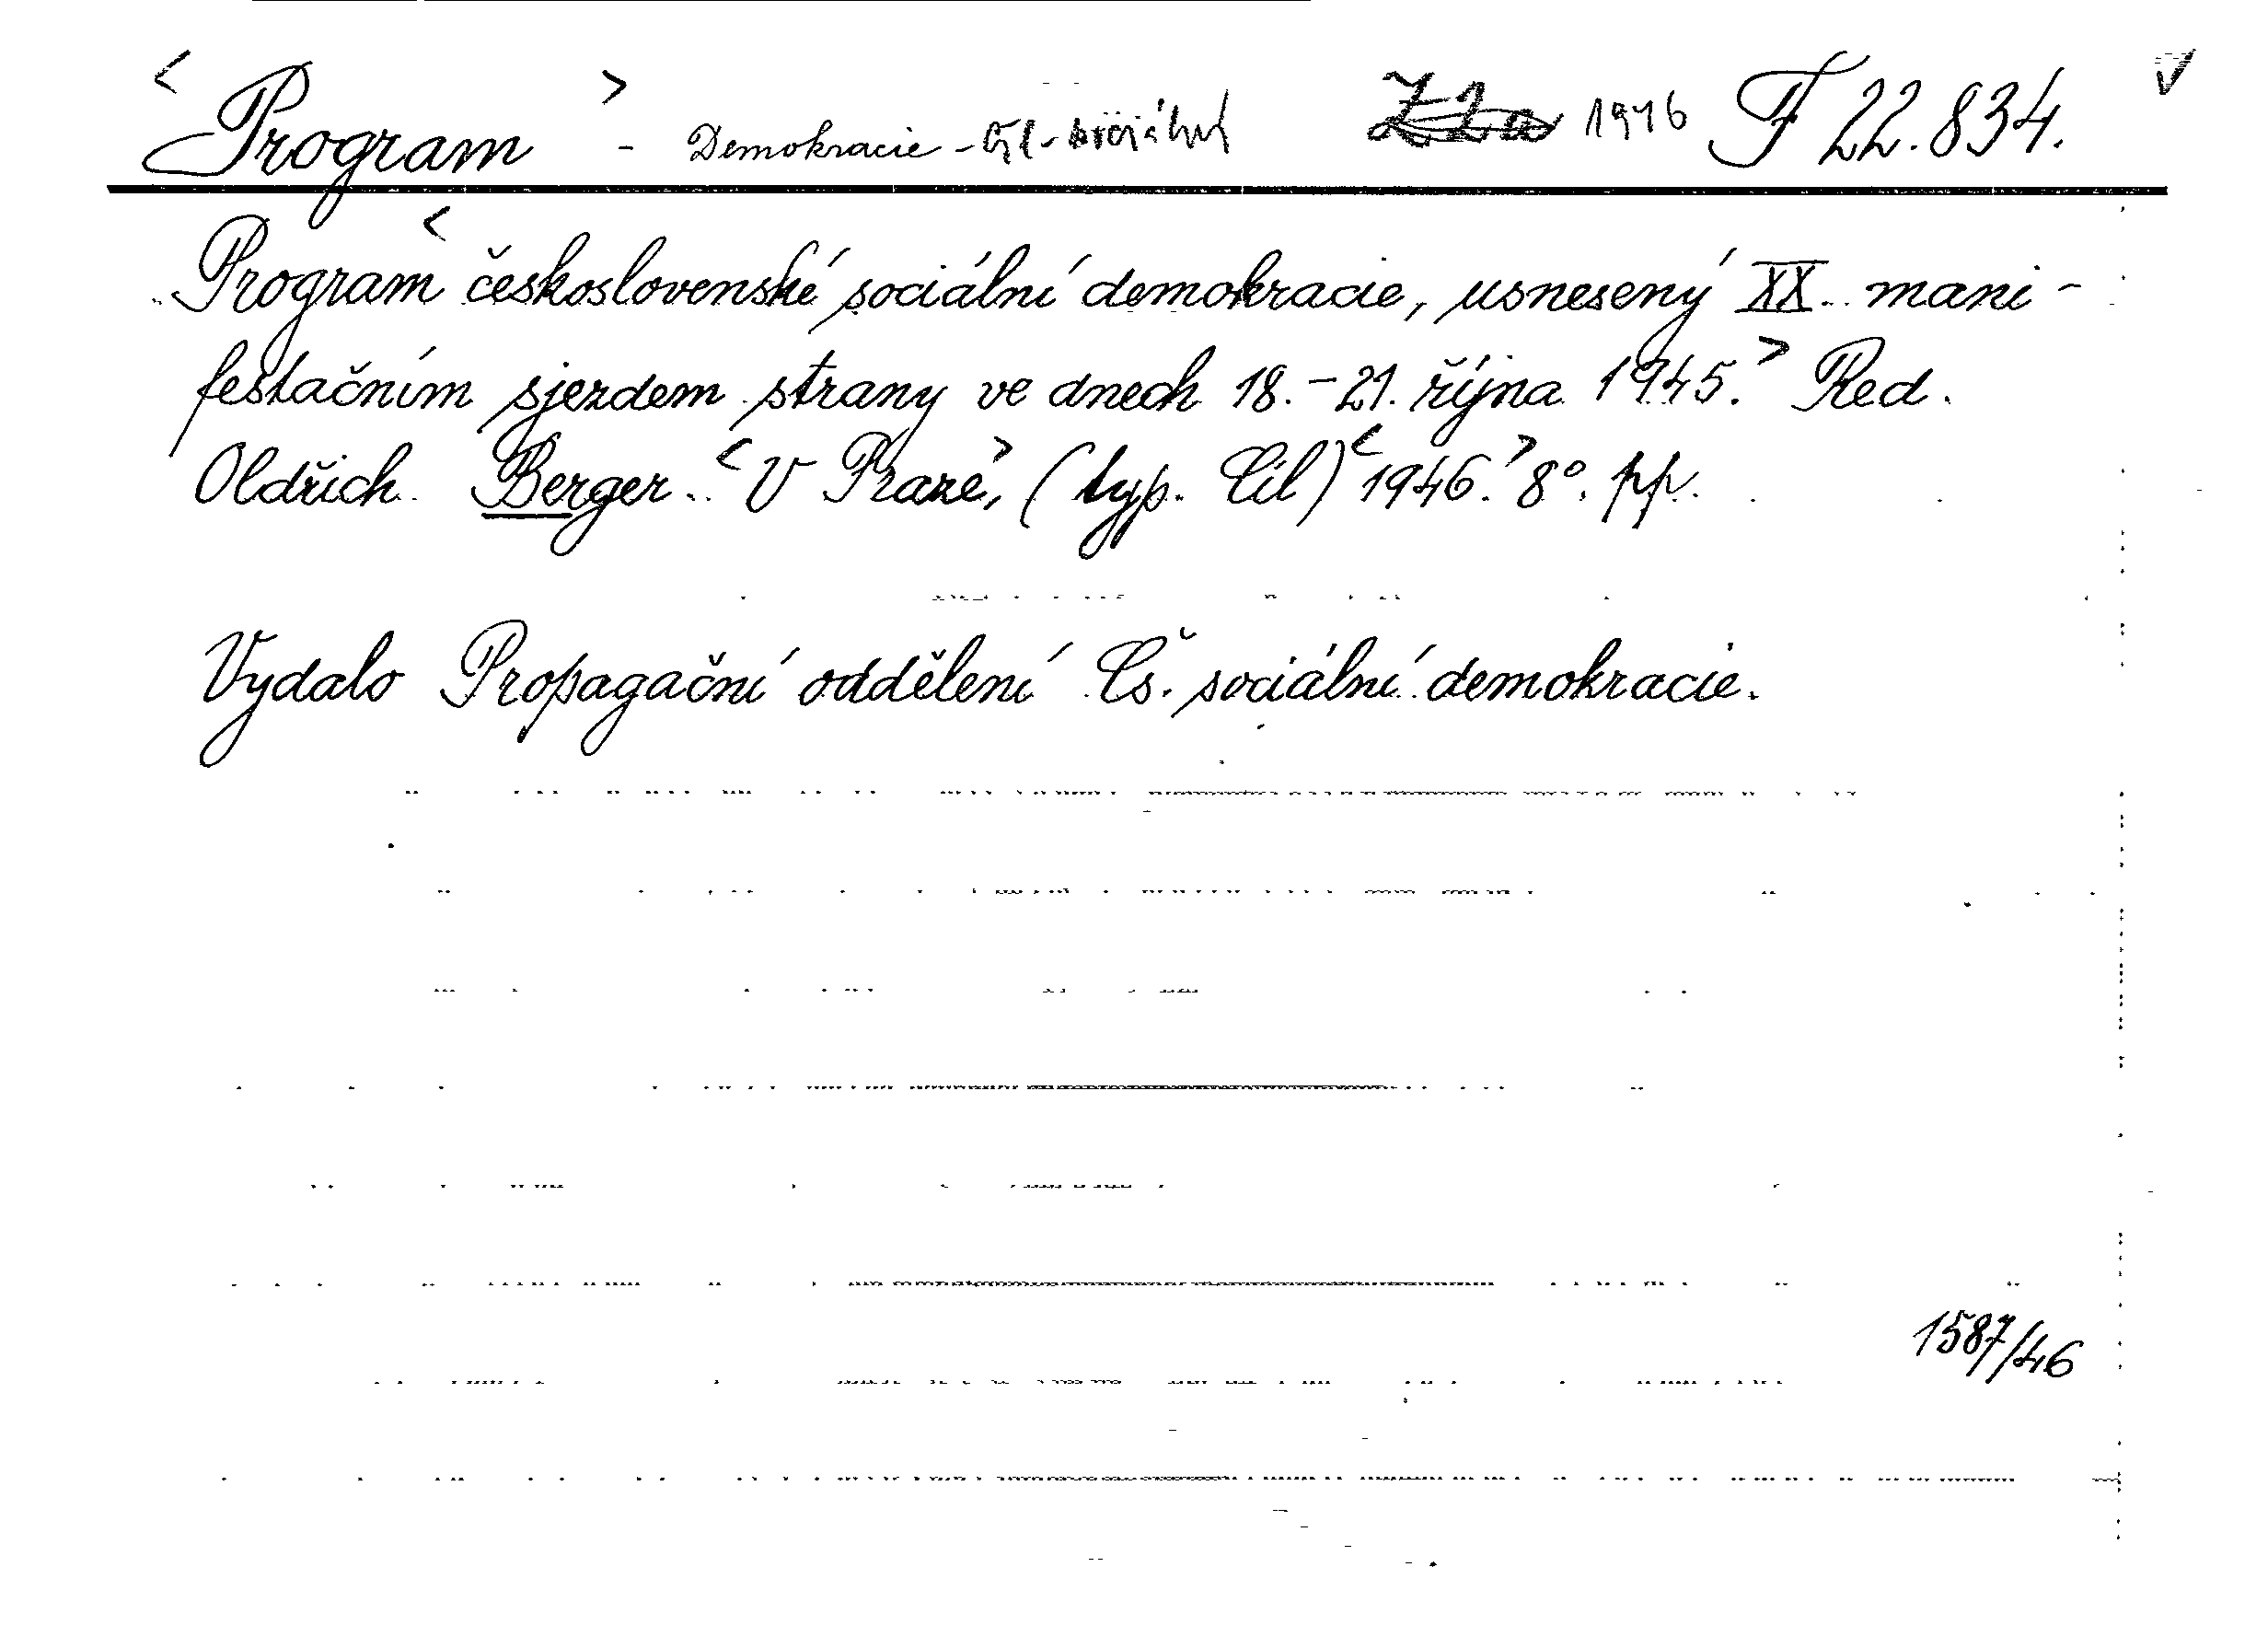 <Program> - Demokracie - čsl - sociální 1946 F 22.834.
Program <československé sociální demokracie, usnesený XX. mani-
festačním sjezdem strany ve dnech 18.-21. října 1945.> Red.
Oldřich Berger. <V Praze,> (typ. Cíl) <1946.> 8°. pp.
Vydalo Propagační oddělení Čs. sociální demokracie.
1587/46